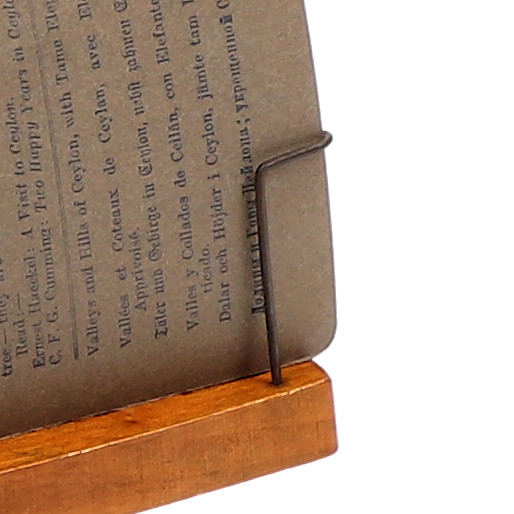 tree—they are
Read:—
Ernest Haeckel: A Visit to Ceylon.
C. F. G. Cumming: Two Happy Years in Ceylo
Valleys and Hills of Ceylon, with Tame Ele
Vallées et Coteaux de Ceylan, avec El
Apprivoisé.
Täler und Gebirge in Ceylon, nebst zahmen E
Valles y Collados de Ceilán, con Elefante
ticado.
Dalar och Höjder i Ceylon, jämte tam
Долины и Горы Цейлона; укрощенной